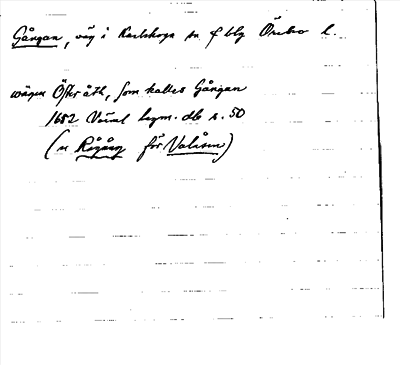 Gången, väg i Karlskoga sn f blg Örebro l.
wägen Öfter åth, som kallas Gången
1682 Värml lagm. db s. 50
(= Rågång för Valåsen)